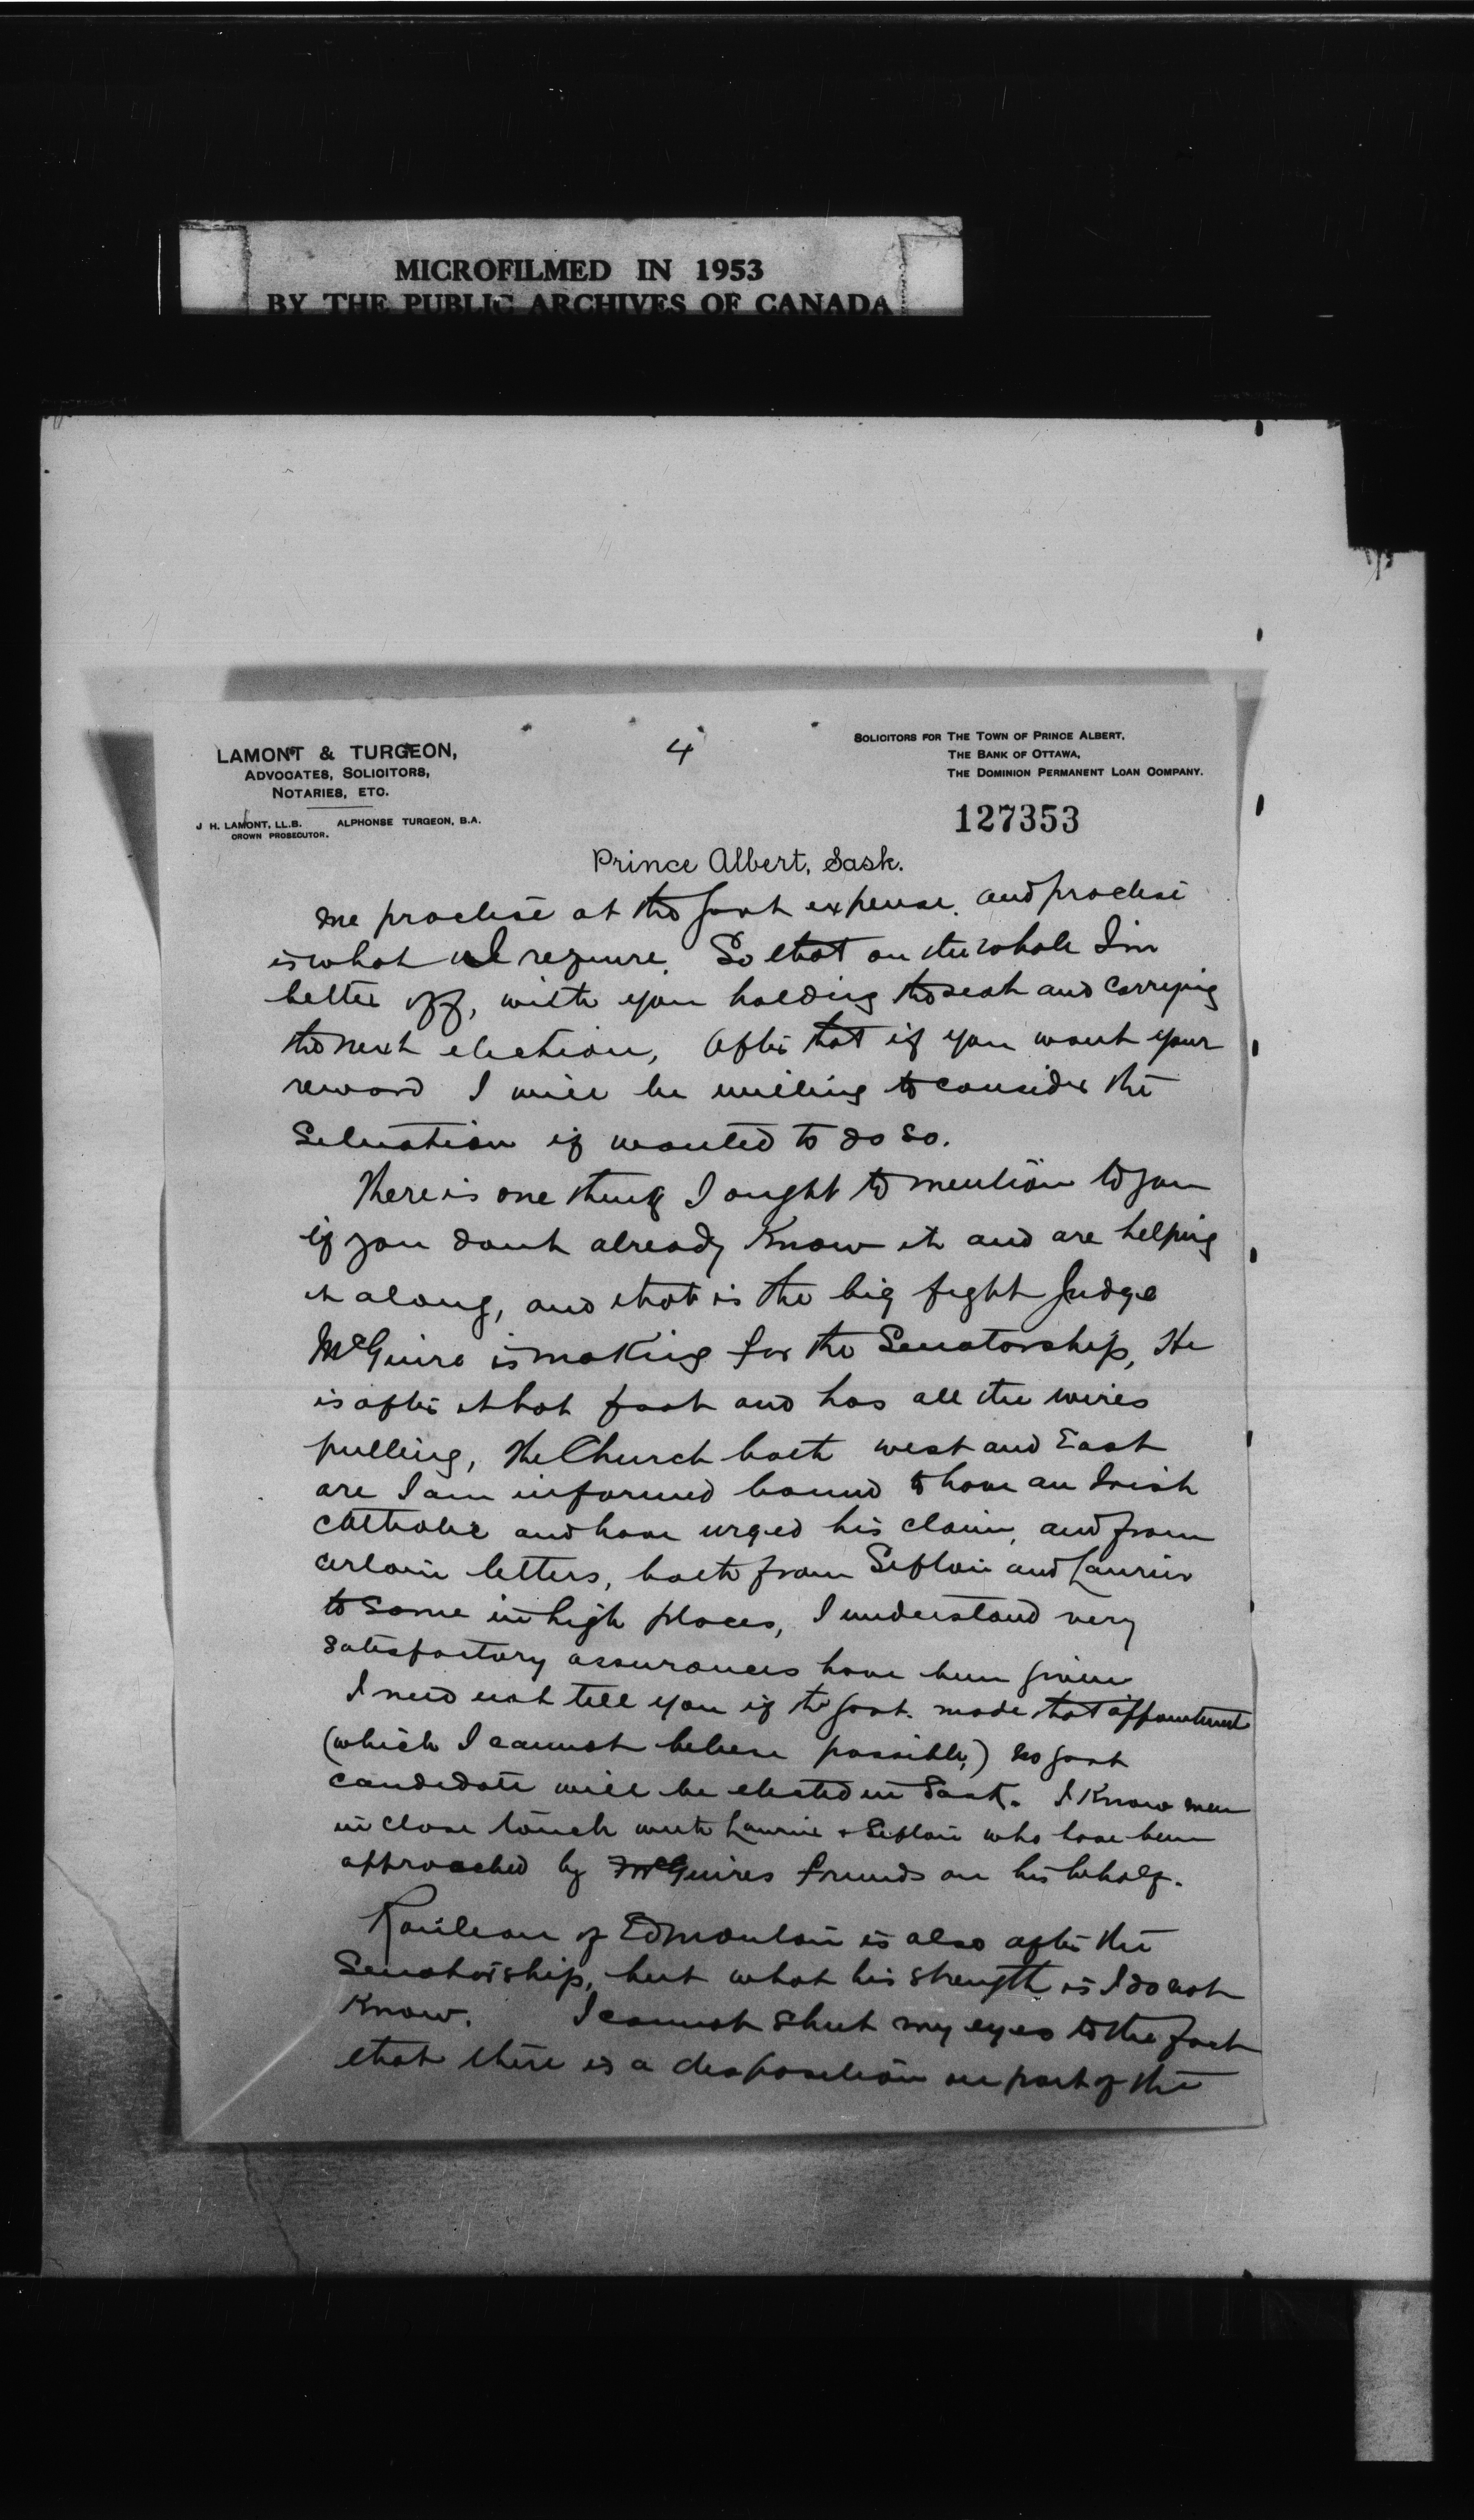 MICROFILMED IN 1953
BY THE PUBLIC ARCHIVES OF CANADA
4
LAMONT & TURGEON,
ADVOCATES, SOLICITORS,
NOTARIES, ETC.
J H. LAMONT, LL.B. ALPHONSE TURGEON, B.A.
CROWN PROSECUTOR.
SOLICITORS FOR THE TOWN OF PRINCE ALBERT,
THE BANK OF OTTAWA,
THE DOMINION PERMANENT LOAN COMPANY.
127353
Prince Albert, Sask.
me practise at the Govt expense. and practise
is what I require. So that on the whole I'm
better off, with you holding the seat and carrying
the next election, After that if you want your
reward I will be willing to consider the
Situation if wanted to do so.
There is one thing I ought to mention to you
if you dont already Know it and are helping
it along, and that is the big fight Judge
McGuire is making for the Senatorship, He
is after it hot foot and has all the wires
pulling, The Church both west and East
are I am informed bound to have an Irish
Catholic and have urged his claim, and from
certain letters, both from Sifton and Laurier
to some in high places, I understand very
satisfactory assurances have been given
I need not tell you if the Govt. made that appointment
(which I cannot believe possible,) no Govt
candidate will be elected in Sask. I Know men
in close touch with Laurier & Sifton who have been
approached by McGuires friends on his behalf.
Rouleau of Edmonton is also after the
Senatorship, but what his strength is I do not
Know. I cannot shut my eyes to the fact
that there is a disposition on part of the